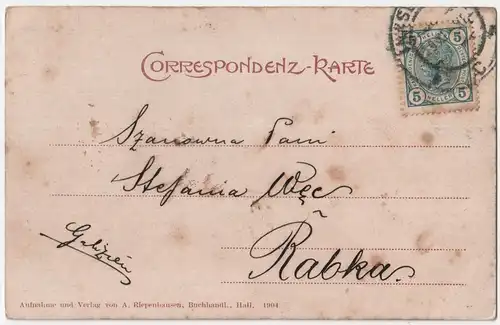 CORRESPONDENZ-KARTE
5 5
HELLER
5 5
Szanowna Pani
Stefania Węc
Galizien
Rabka.
Aufnahme und Verlag von A. Riepenhausen, Buchhandl., Hall. 1904